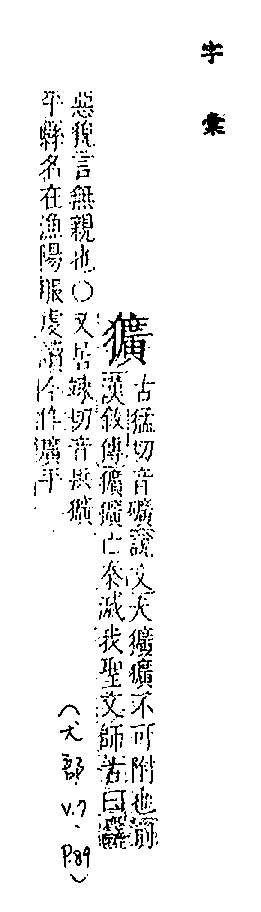 字彙
獷
古猛切音礦說文犬獷獷不可附也前
漢敘傳獷獷亡秦滅我聖文師古曰獷
惡貌言無親也○又居竦切音拱獷
平縣名在漁陽服虔讀今作獷平
(犬部
V.7、
P.89)